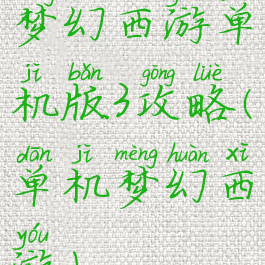 梦幻西游单
jī bǎn gōng lüè
机版3攻略(
dān jī mèng huàn xī
单机梦幻西
yóu
游)